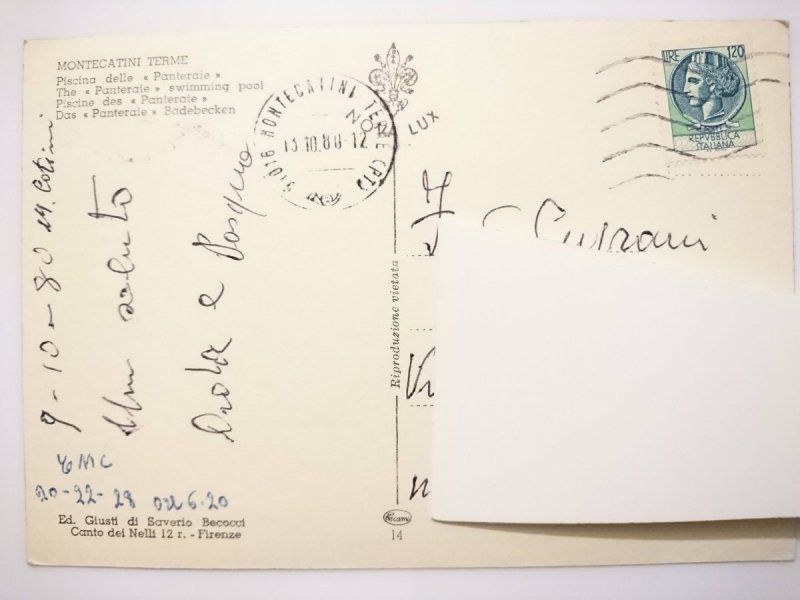 MONTECATINI TERME
Piscina delle « Panteraie »
The « Panteraie » swimming pool
Piscine des « Panteraie »
Das « Panteraie » Badebecken
51016 MONTECATINI TERME (PT)
13.10.80-12
NOVA LUX
LIRE 120
REPVBBLICA
ITALIANA
9-10-80 M. Catini
saluto
e Pasquo
EMC
20-22-28 ore 6.20
Riproduzione vietata
Ed. Giusti di Saverio Becocci
Canto dei Nelli 12 r. - Firenze
14